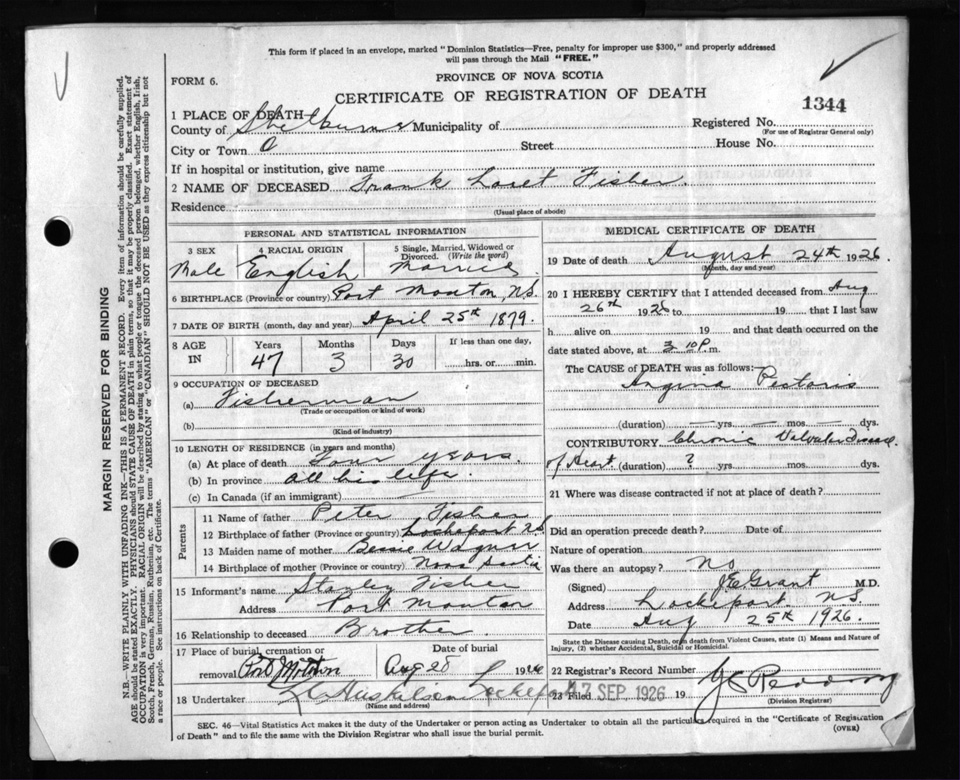 This form if placed in an envelope, marked "Dominion Statistics—Free, penalty for improper use $300," and properly addressed
will pass through the Mail "FREE."
PROVINCE OF NOVA SCOTIA
FORM 6.
CERTIFICATE OF REGISTRATION OF DEATH
1344
1 PLACE OF DEATH—
County of Shelburne Municipality of
Registered No.
(For use of Registrar General only)
City or Town Street House No.
If in hospital or institution, give name
2 NAME OF DECEASED Frank Loret Fisher.
Residence
(Usual place of abode)
PERSONAL AND STATISTICAL INFORMATION
3 SEX 4 RACIAL ORIGIN 5 Single, Married, Widowed or
Divorced. (Write the word)
Male English Married
6 BIRTHPLACE (Province or country) Port Mouton, N.S.
7 DATE OF BIRTH (month, day and year) April 25th 1879.
8 AGE IN Years Months Days If less than one day,
47 3 30 hrs. or min.
9 OCCUPATION OF DECEASED
(a) Fisherman
(Trade or occupation or kind of work)
(b)
(Kind of industry)
10 LENGTH OF RESIDENCE (in years and months)
(a) At place of death Four years.
(b) In province All his life.
(c) In Canada (if an immigrant)
Parents
11 Name of father Peter Fisher
12 Birthplace of father (Province or country) Lockeport N.S.
13 Maiden name of mother Bessie Wagner
14 Birthplace of mother (Province or country) Nova Scotia
15 Informant's name Stanley Fisher
Address Port Mouton
16 Relationship to deceased Brother.
17 Place of burial, cremation or
removal Port Mouton Aug 28 1926
18 Undertaker
(Name and address)
MEDICAL CERTIFICATE OF DEATH
19 Date of death August 24th 1926.
(Month, day and year)
20 I HEREBY CERTIFY that I attended deceased from Aug
26th 1926 to 19 that I last saw
h alive on 19 and that death occurred on
date stated above, at 3 10 P. m.
The CAUSE of DEATH was as follows:—
Angina Pectoris
(duration) yrs. mos. dys.
CONTRIBUTORY Chronic Valvular Disease
of Heart (duration) ? yrs. mos. dys.
21 Where was disease contracted if not at place of death?
Did an operation precede death? Date of
Nature of operation
Was there an autopsy? No
(Signed) Grant M.D.
Address Lockeport N.S.
Date Aug 25th 1926.
State the Disease causing Death, or in death from Violent Causes, state (1) Means and Nature of
Injury, (2) whether Accidental, Suicidal or Homicidal.
22 Registrar's Record Number
23 Filed SEP 1926 19
(Division Registrar)
SEC. 46—Vital Statistics Act makes it the duty of the Undertaker or person acting as Undertaker to obtain all the particulars required in the "Certificate of Registration
of Death" and to file the same with the Division Registrar who shall issue the burial permit.
(OVER)
MARGIN RESERVED FOR BINDING
N.B.—WRITE PLAINLY WITH UNFADING INK—THIS IS A PERMANENT RECORD. Every item of information should be carefully supplied.
AGE should be stated EXACTLY. PHYSICIANS should STATE CAUSE OF DEATH in plain terms, so that it may be properly classified. Exact statement of
OCCUPATION is very important. RACIAL ORIGIN will be described by stating to what people or tongue the deceased person belonged, whether English, Irish,
Scotch, French, German, Russian, Ruthenian, etc. The terms "AMERICAN" or "CANADIAN" SHOULD NOT BE USED as they express citizenship but not
a race or people. See instructions on back of Certificate.